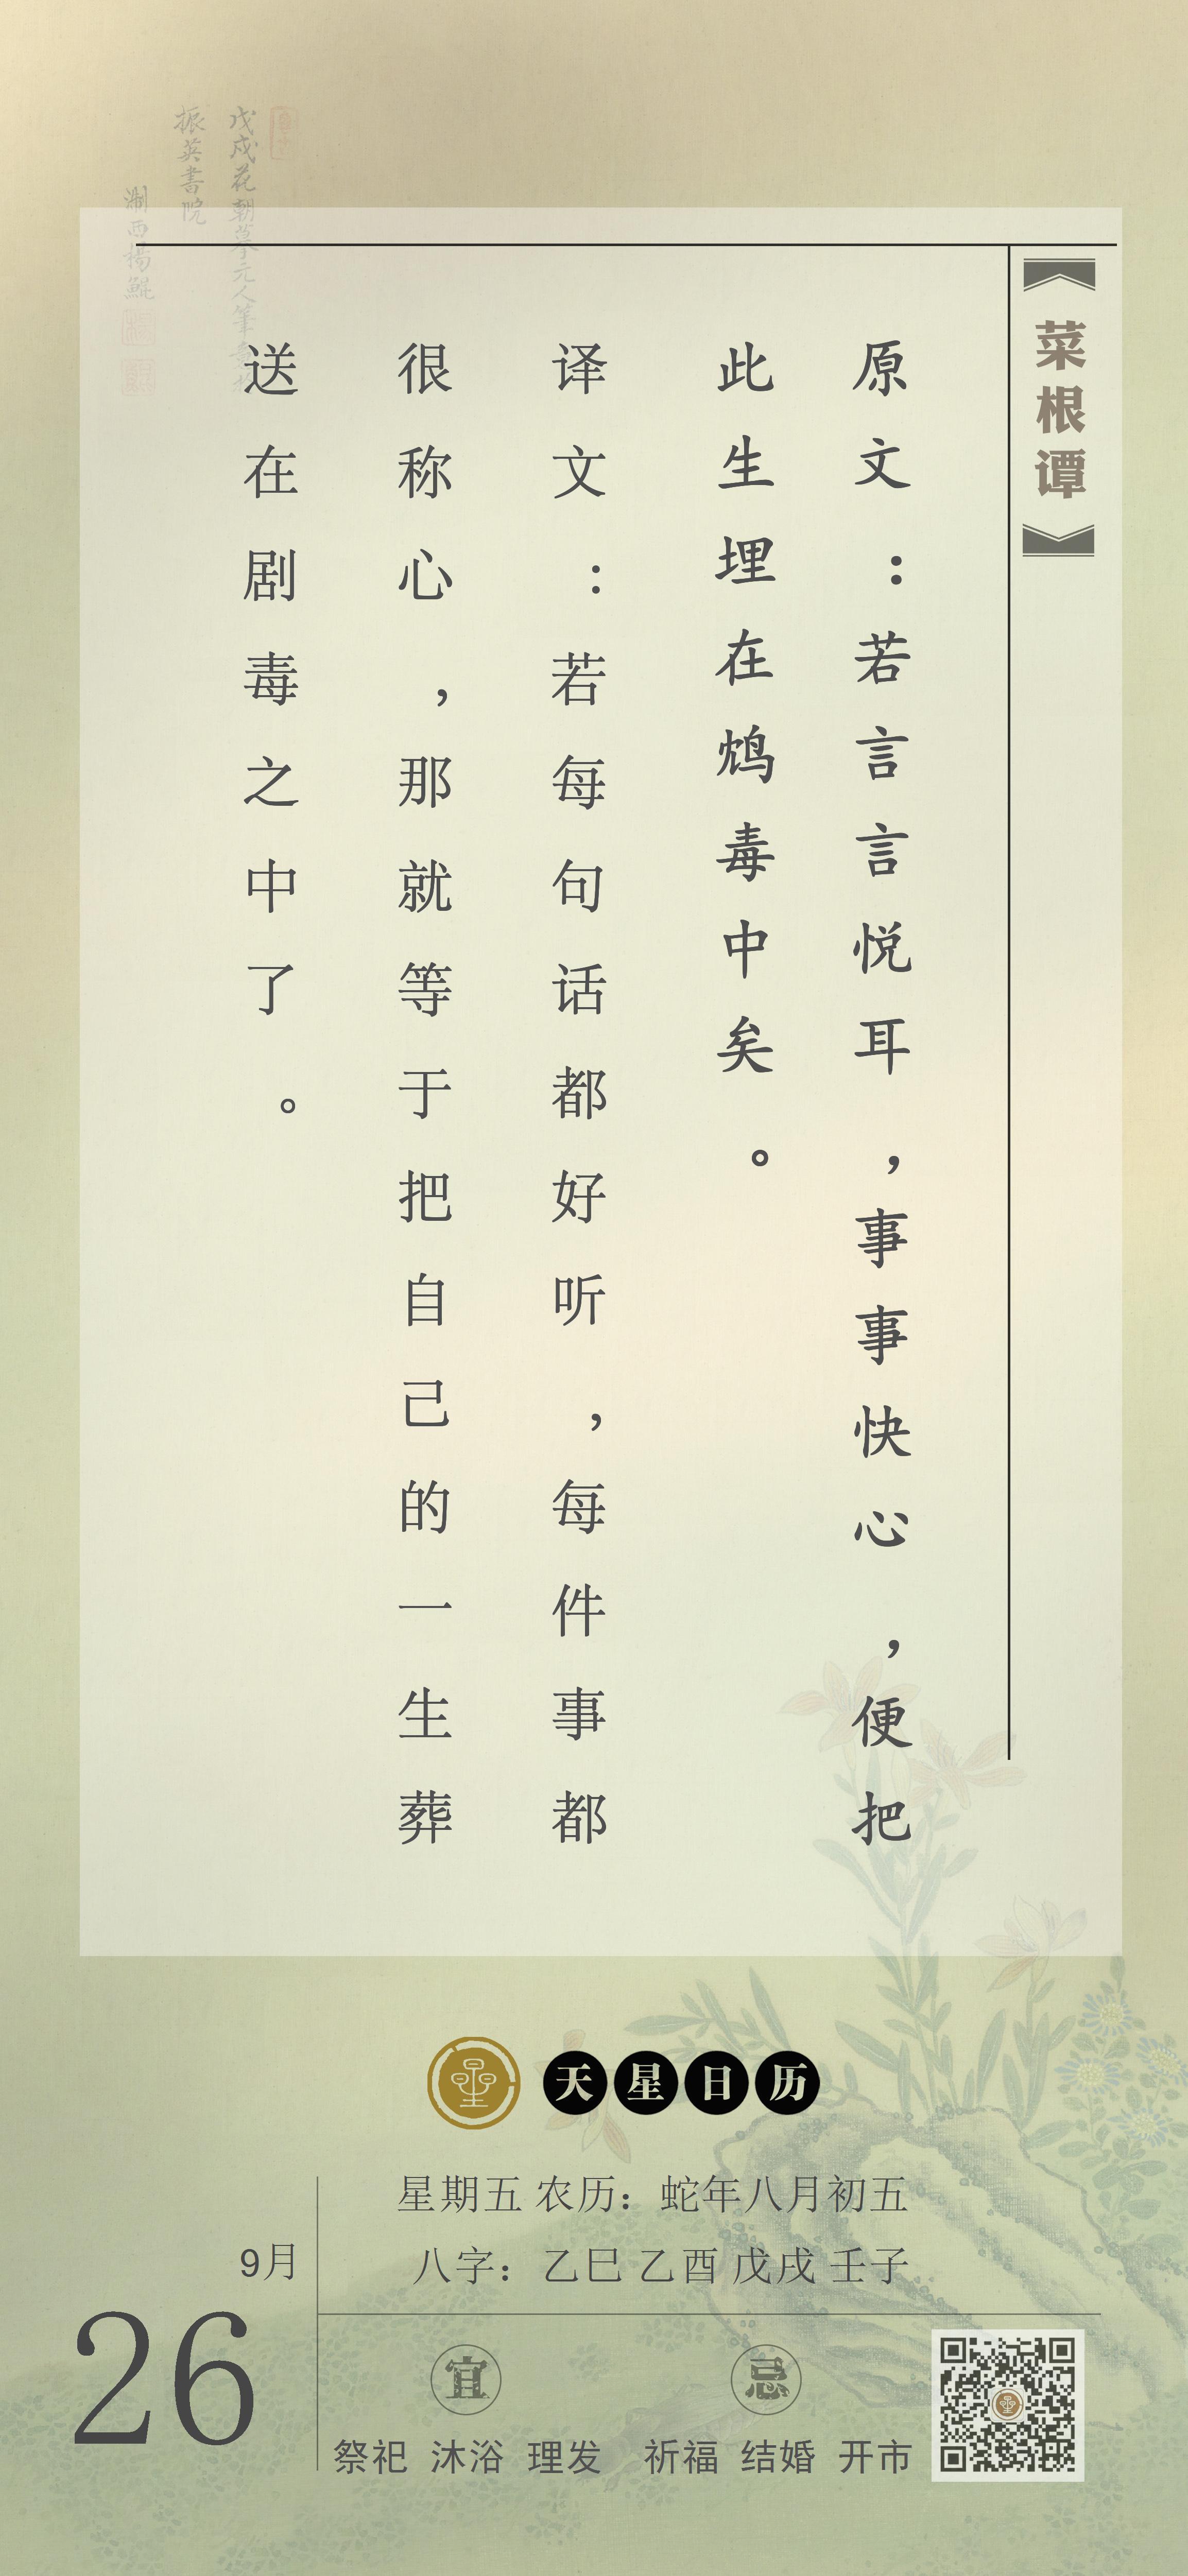 菜根谭
原文:若言言悦耳,事事快心,便把
此生埋在鸩毒中矣。
译文:若每句话都好听,每件事都
很称心,那就等于把自己的一生葬
送在剧毒之中了。
戊戌花朝摹元人筆意
振英書院
淛西楊鯤
天星日历
星期五 农历:蛇年八月初五
八字:乙巳 乙酉 戊戌 壬子
9月
26
宜
祭祀 沐浴 理发
忌
祈福 结婚 开市